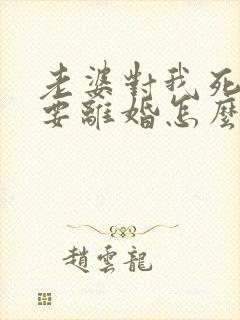 老婆對我死
要離婚怎麼
趙雲龍